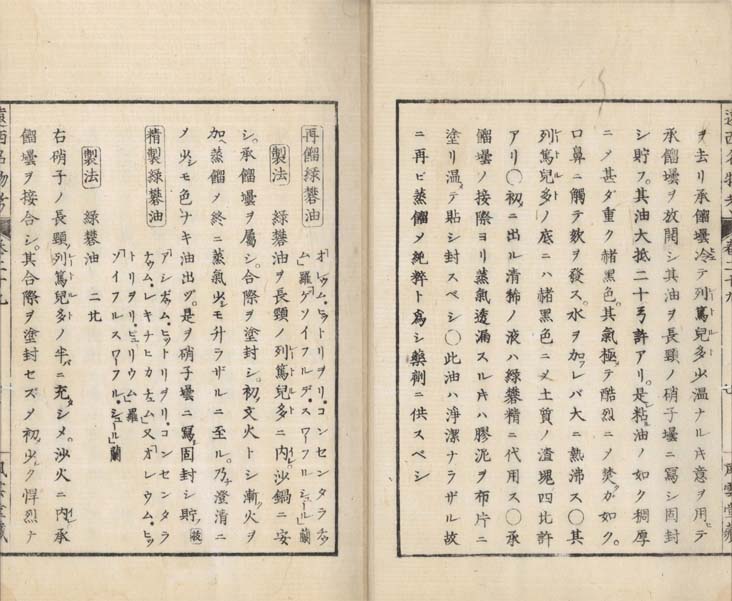 ヲ去リ承餾壜冷テ列篤兒多少温ナルキ意ヲ用テ
承餾壜ヲ放開シ其油ヲ長頸ノ硝子壜ニ寫シ固封
シ貯フ。其油大抵二十弓許アリ。是粘油ノ如ク稠厚
ニメ甚ダ重ク赭黑色。其氣極テ酷烈ニメ焚ガ如ク。
口鼻ニ觸テ欬ヲ發ス。水ヲ加レバ大ニ熱沸ス〇其
列篤兒多ノ底ニハ赭黑色ニメ土質ノ渣塊四比許
アリ〇初ニ出ル清稀ノ液ハ綠礬精ニ代用ス〇承
餾壜ノ接際ヨリ蒸氣透漏スルキハ膠泥ヲ布片ニ
塗リ温テ貼シ封スベシ〇此油ハ淨潔ナラザル故
ニ再ビ蒸餾メ純粹ト爲シ藥劑ニ供スベシ
遠西名物考
卷二十九
風雲堂藏
再餾綠礬油 オレウム・ヒットリヲリ・コンセンタラチュム 羅 ゲソイフルデ・スワーフルシュール 蘭
製法 綠礬油ヲ長頸ノ列篤兒多ニ内レ沙鍋ニ安
シ。承餾壜ヲ屬シ。合際ヲ塗封シ。初文火トシ漸ク火ヲ
加ヘ蒸餾ノ終ニ蒸氣少モ升ラザルニ至ル。乃チ澄清ニ
メ少シモ色ナキ油出ヅ。是ヲ硝子壜ニ寫シ固封シ貯フ 菝
精製綠礬油 アシヂュム・ヒットリヲリ・コンセンタラ
チウム・レキナヒカチュム 又 オレウム・ヒッ
トリヲリ・ピュリウム 羅
ソイフルスワーフル・シュール 蘭
製法 綠礬油 二比
右硝子ノ長頸列篤兒多ノ半ニ充シメ。沙火ニ内レ承
餾壜ヲ接合シ。其合際ヲ塗封セズメ初少ク悍烈ナ
遠西名物考
卷二十九
風雲堂藏